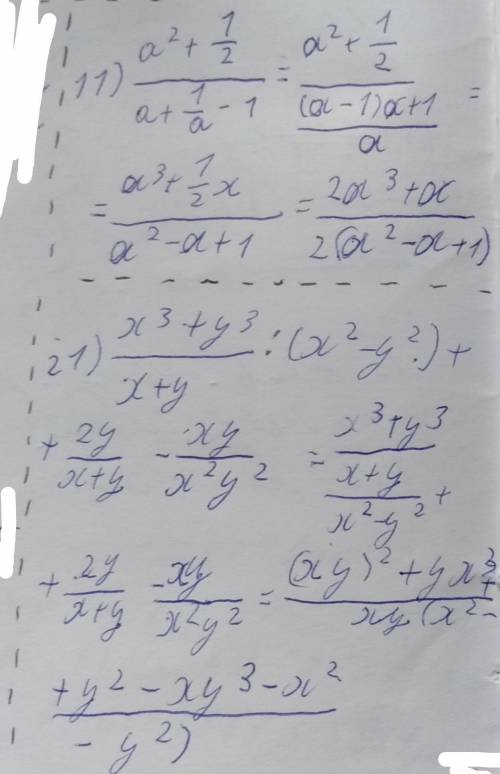 11) (a² + 1/2)/(a + 1/a - 1) = (a² + 1/2)/(((a-1)a+1)/a) =
= (a³ + 1/2 x)/(a² - a + 1) = (2a³ + a)/(2(a² - a + 1))
21) (x³ + y³)/(x+y) : (x² - y²) +
+ 2y/(x+y) - xy/(x²y²) = (x³ + y³)/((x+y)/(x² - y²)) +
+ 2y/(x+y) - xy/(x²y²) = ((xy)² + yx³ +)/(xy(x² -
(+ y² - xy³ - x²)/(- y²)